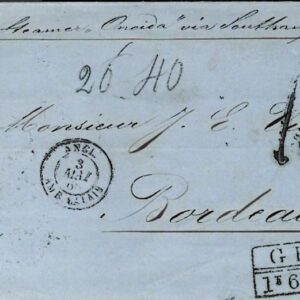 Steamer "Oneida" via Southam
26 40
Monsieur J. E.
ANGL.
3
MAI
AMB. CALAIS
Bordea
G
1F6